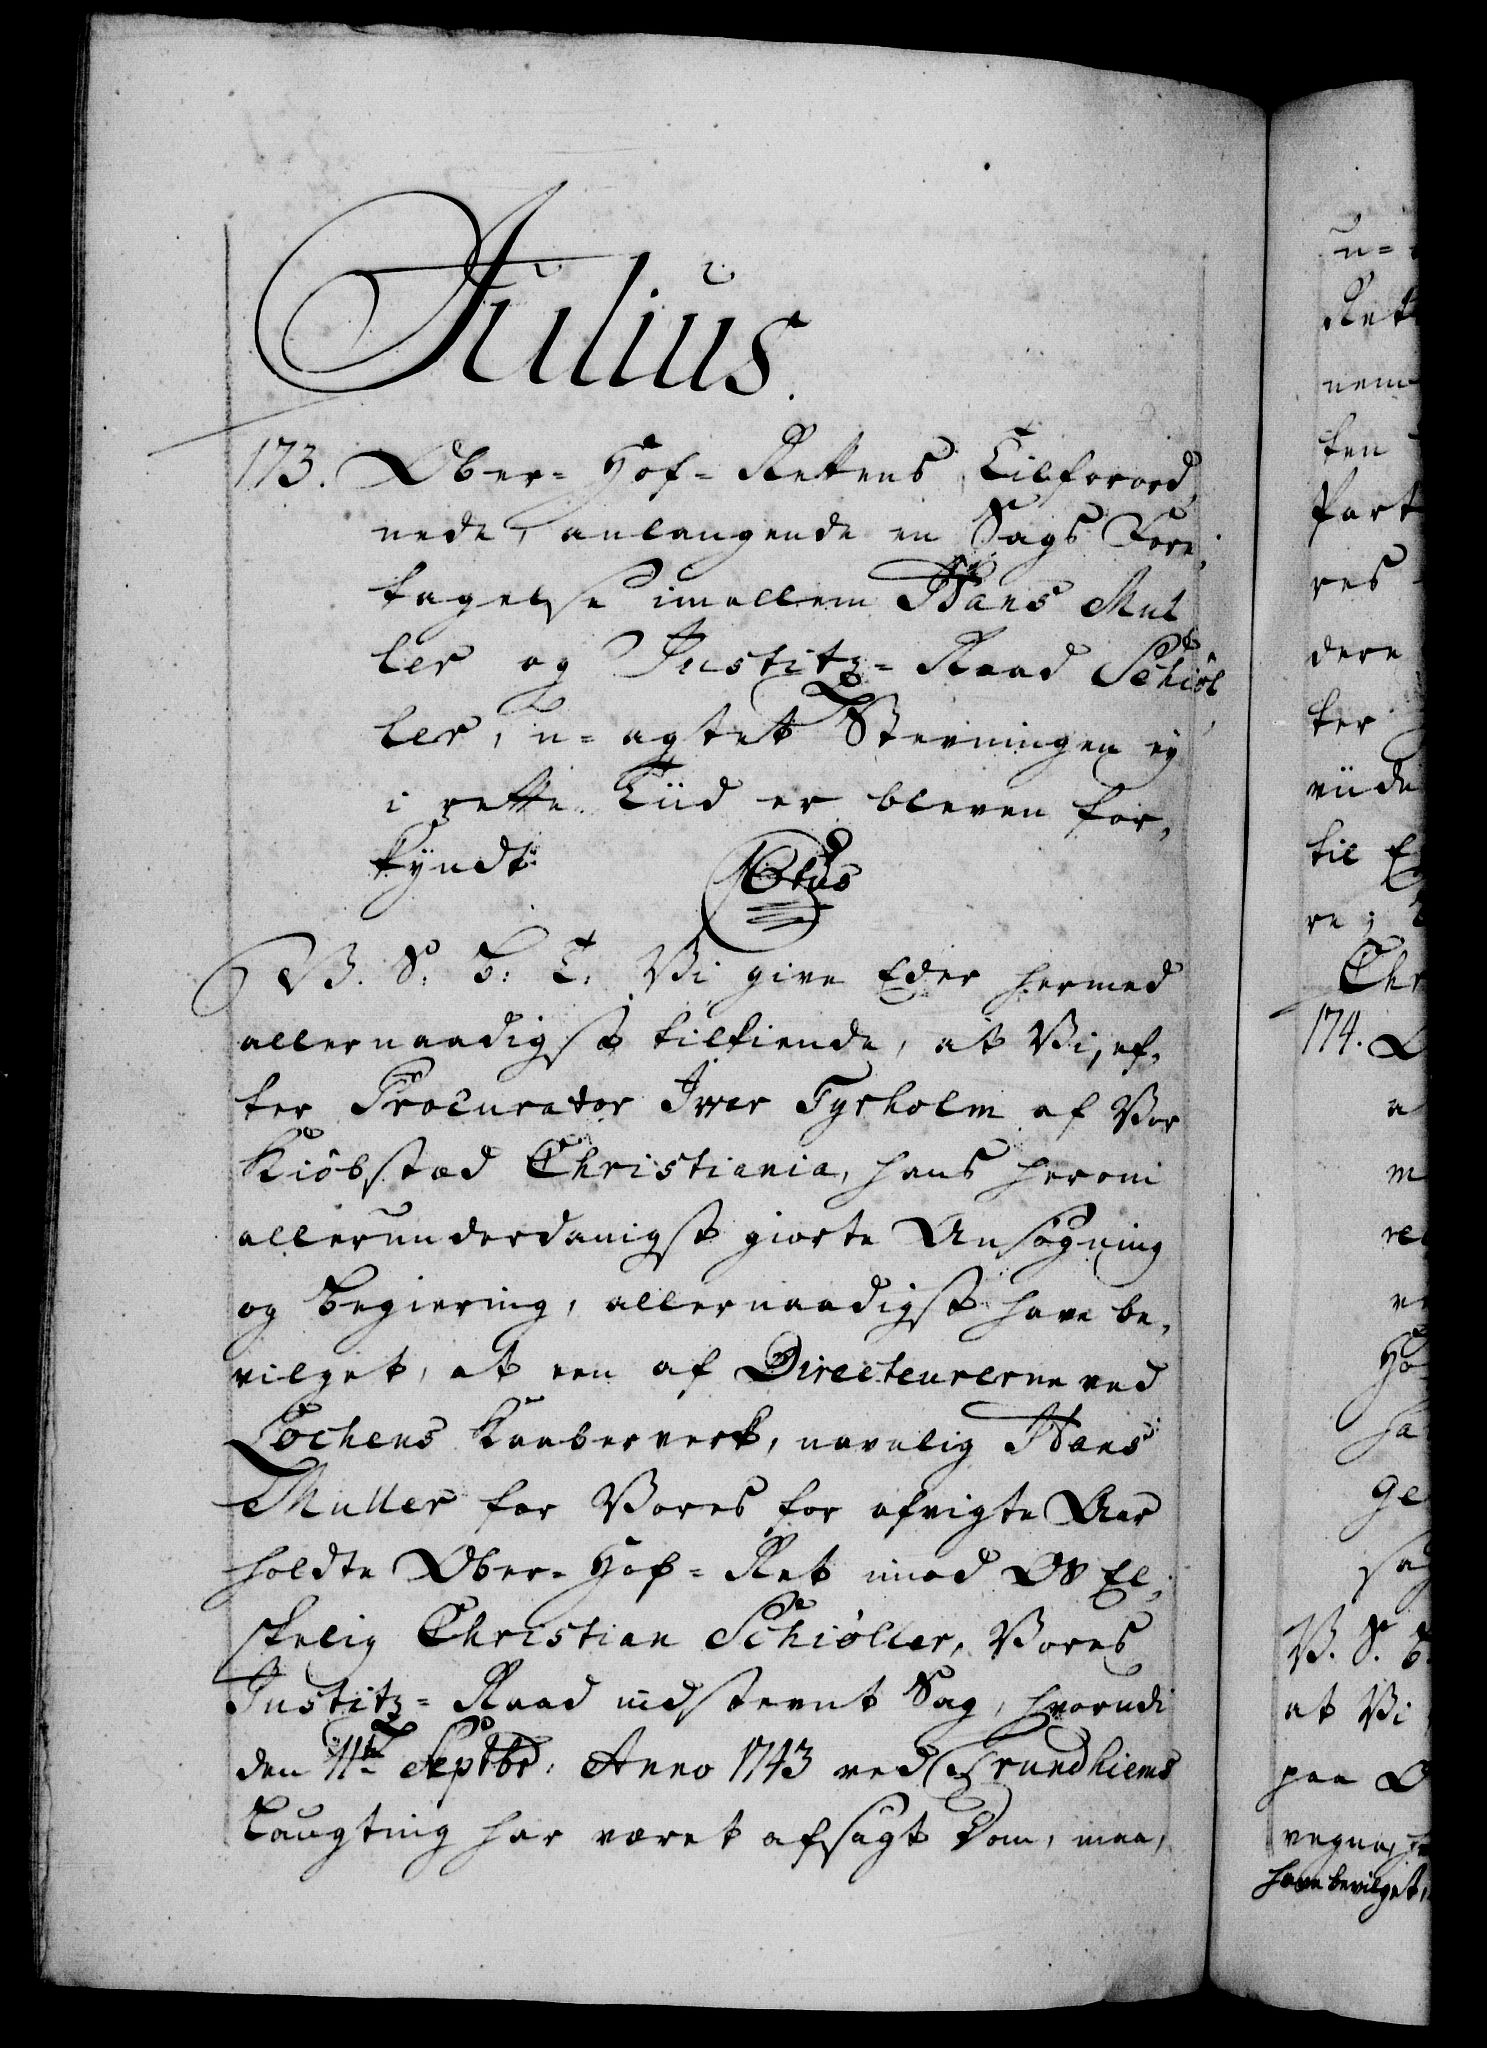 Julius.
173. Ober-Hof-Rettens Tilforord,
nede, anlangende en Sags Fore,
tagelse imellem Hans Mul
ler og Justitz-Raad Schiöl
ler, u-agtet Stevningen ey
i rette Tiid er bleven for,
kyndt.
V. S. B: T: Vi give Eder hermed
allernaadigst tilkiende, at Vi, ef,
ter Procurator Iver Tyrholm af Vor
Kiöbstæd Christiania, hans herom
allerunderdanigst giorte Ansögning
og Begiering, allernaadigst have be,
vilget, at een af Directeurerne ved
Lochens Kaaberverk, navnlig Hans
Muller for Vores for afvigte Aar
holdte Ober-Hof-Ret imod Os El,
skelig Christian Schiøller, Vores
Justitz-Raad indstevnt Sag, hvorudi
den 11te Septbr: Anno 1743 ved Trundhiems
Laugting har været afsagt Dom, maa,
u-
Ret
nem
ten
Part
res
dere
ter
viide
til
re;
Chr
174. O
a
m
rel
Ho
ha
ge
sag
V. S. B.
at Vi
paa O
vegne,
have bevilget,